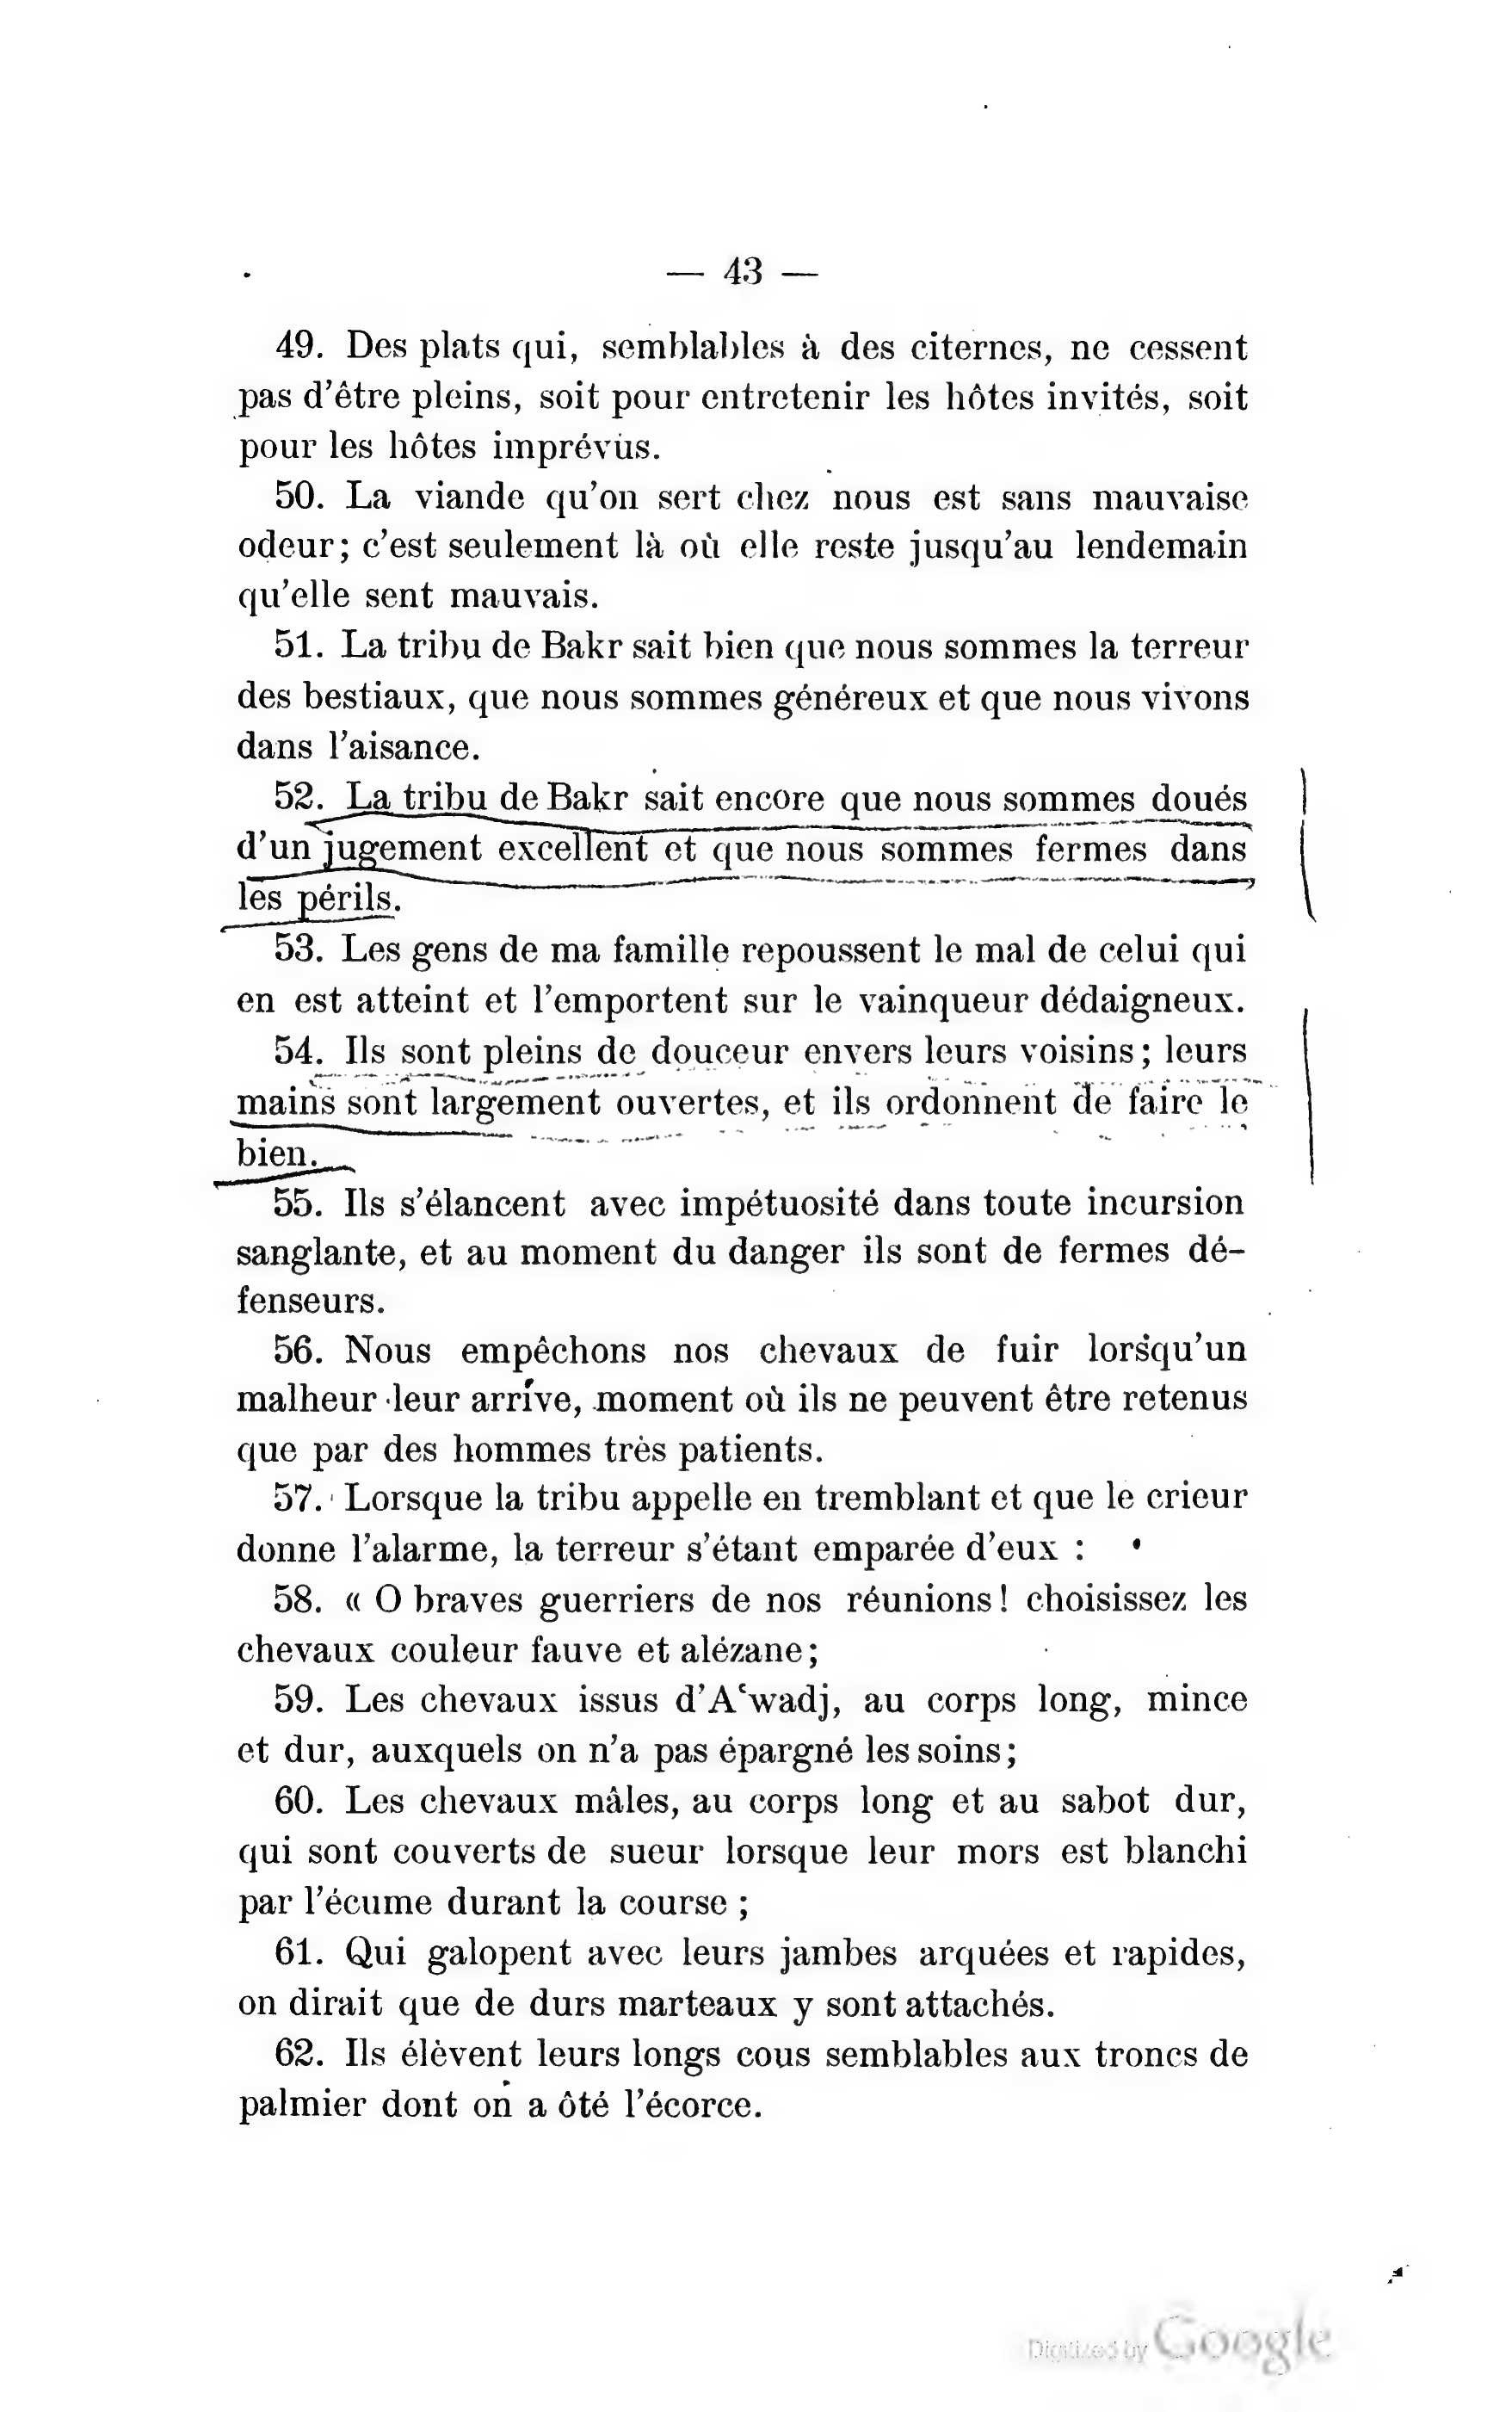 — 43 —
49. Des plats qui, semblables à des citernes, ne cessent
pas d'être pleins, soit pour entretenir les hôtes invités, soit
pour les hôtes imprévus.
50. La viande qu'on sert chez nous est sans mauvaise
odeur; c'est seulement là où elle reste jusqu'au lendemain
qu'elle sent mauvais.
51. La tribu de Bakr sait bien que nous sommes la terreur
des bestiaux, que nous sommes généreux et que nous vivons
dans l'aisance.
52. La tribu de Bakr sait encore que nous sommes doués
d'un jugement excellent et que nous sommes fermes dans
les périls.
53. Les gens de ma famille repoussent le mal de celui qui
en est atteint et l'emportent sur le vainqueur dédaigneux.
54. Ils sont pleins de douceur envers leurs voisins; leurs
mains sont largement ouvertes, et ils ordonnent de faire le
bien.
55. Ils s'élancent avec impétuosité dans toute incursion
sanglante, et au moment du danger ils sont de fermes dé-
fenseurs.
56. Nous empêchons nos chevaux de fuir lorsqu'un
malheur leur arrive, moment où ils ne peuvent être retenus
que par des hommes très patients.
57. Lorsque la tribu appelle en tremblant et que le crieur
donne l'alarme, la terreur s'étant emparée d'eux :
58. « O braves guerriers de nos réunions! choisissez les
chevaux couleur fauve et alézane;
59. Les chevaux issus d'Aʿwadj, au corps long, mince
et dur, auxquels on n'a pas épargné les soins;
60. Les chevaux mâles, au corps long et au sabot dur,
qui sont couverts de sueur lorsque leur mors est blanchi
par l'écume durant la course ;
61. Qui galopent avec leurs jambes arquées et rapides,
on dirait que de durs marteaux y sont attachés.
62. Ils élèvent leurs longs cous semblables aux troncs de
palmier dont on a ôté l'écorce.
Digitized by Google